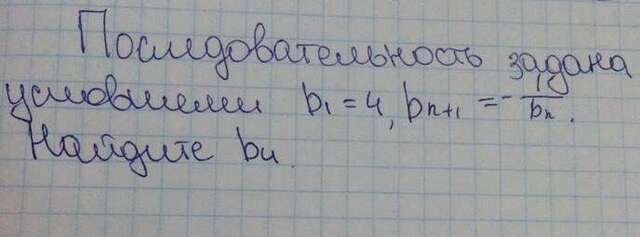 Последовательность задана
условиями b₁ = 4, bₙ₊₁ = -1/bₙ.
Найдите b₄.